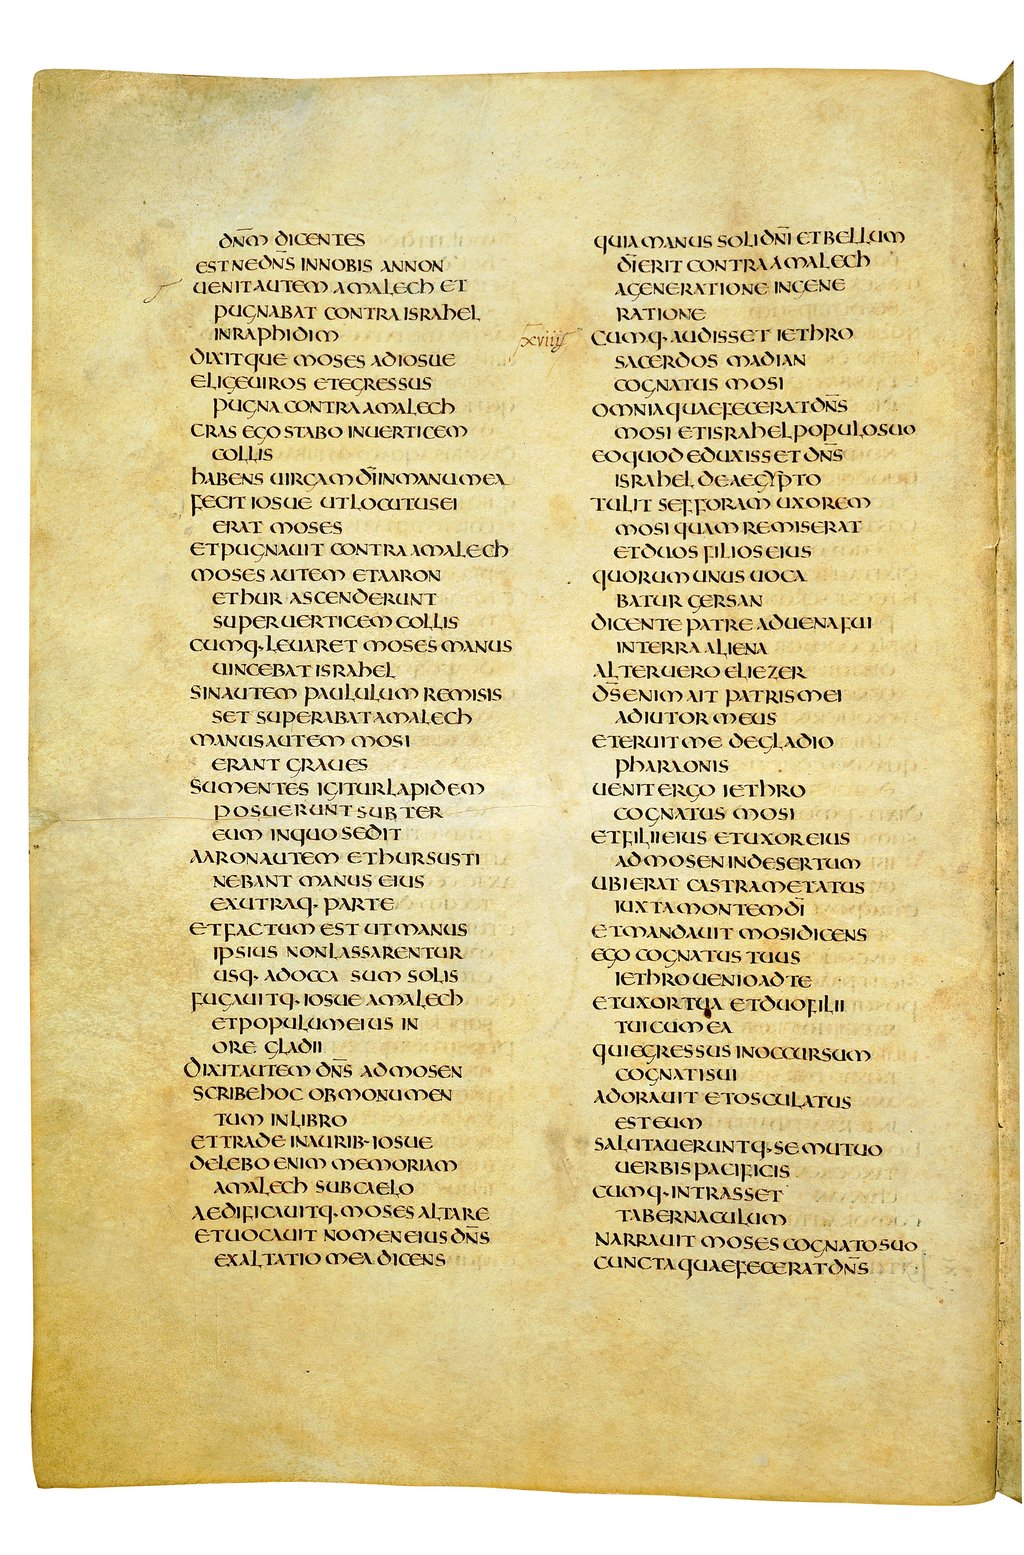 dn̄m dicentes
estne dn̄s in nobis an non
uenit autem amalech et
pugnabat contra israhel
in raphidim
dixitque moses ad iosue
elige uiros et egressus
pugna contra amalech
cras ego stabo in uerticem
collis
habens uirgam dī in manu mea
fecit iosue ut locutus ei
erat moses
et pugnauit contra amalech
moses autem et aaron
et hur ascenderunt
super uerticem collis
cumq· leuaret moses manus
uincebat israhel
sin autem paululum remisis
set superabat amalech
manus autem mosi
erant graues
sumentes igitur lapidem
posuerunt subter
eum in quo sedit
aaron autem et hur susti
nebant manus eius
ex utraq· parte
et factum est ut manus
ipsius non lassarentur
usq· ad occasum solis
fugauitq· iosue amalech
et populum eius in
ore gladii
dixit autem dn̄s ad mosen
scribe hoc ob monumen
tum in libro
et trade in aurib· iosue
delebo enim memoriam
amalech sub caelo
aedificauitq· moses altare
et uocauit nomen eius dn̄s
exaltatio mea dicens
quia manus soli dn̄i et bellum
dī erit contra amalech
a generatione in gene
ratione
xviii
cumq· audisset iethro
sacerdos madian
cognatus mosi
omnia quae fecerat dn̄s
mosi et israhel populo suo
eo quod eduxisset dn̄s
israhel de aegypto
tulit sefforam uxorem
mosi quam remiserat
et duos filios eius
quorum unus uoca
batur gersan
dicente patre aduena fui
in terra aliena
alter uero eliezer
ds̄ enim ait patris mei
adiutor meus
et eruit me de gladio
pharaonis
uenit ergo iethro
cognatus mosi
et filii eius et uxor eius
ad mosen in desertum
ubi erat castrametatus
iuxta montem dī
et mandauit mosi dicens
ego cognatus tuus
iethro uenio ad te
et uxor tua et duo filii
tui cum ea
qui egressus in occursum
cognati sui
adorauit et osculatus
est eum
salutaueruntq· se mutuo
uerbis pacificis
cumq· intrasset
tabernaculum
narrauit moses cognato suo
cuncta quae fecerat dn̄s